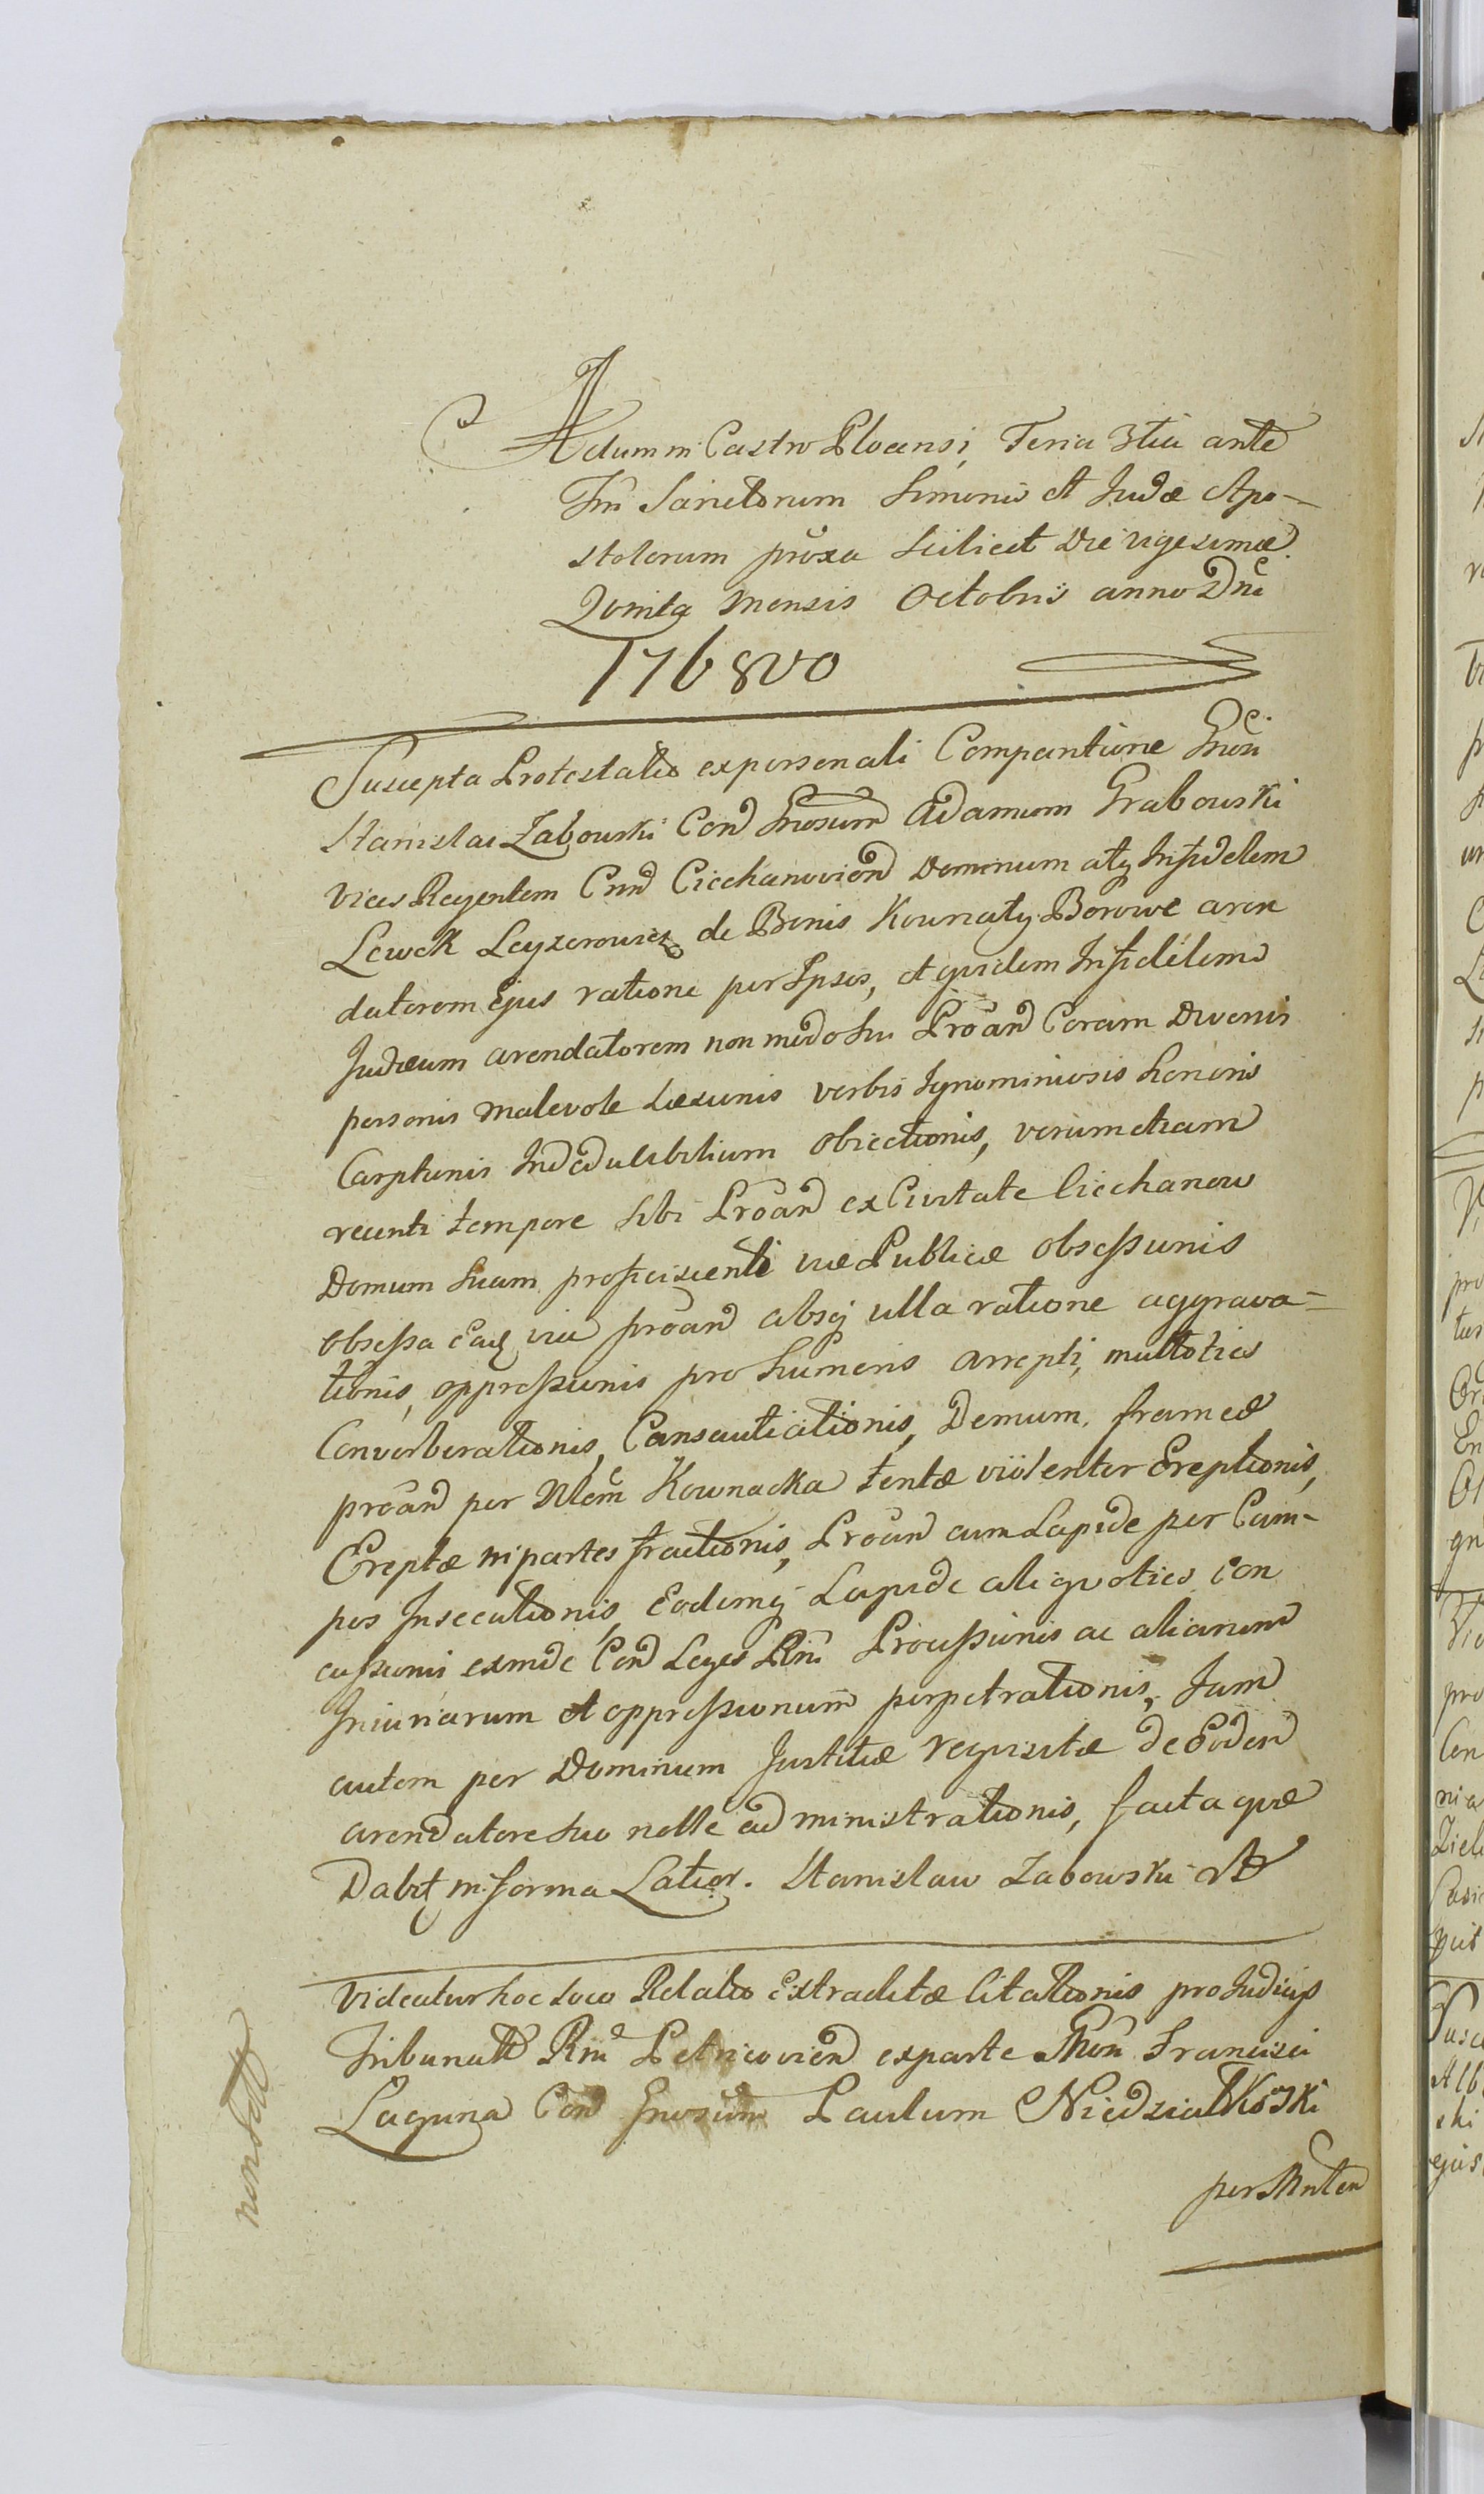 Actum in Castro Plocensi, Feria 3tia ante
Ftm Sanctorum Simonis et Judæ Apo-
stolorum proxa scilicet Die vigesima
Quinta Mensis Octobris anno Dni
1768vo
Suscepta Protestatio ex personali Comparitione Gnosi
Stanislai Zabowski Con Gnosum Adamum Grabowski
Vices Regentem Cnn Ciechanovien Dominum atq Infidelem
Lewek Leyzerowicz de Bonis Kownaty Borowe aren
datorem Ejus ratione per Ipsos, et quidem Infidelem
Judæum arendatorem non modo sui Proan Coram Diversis
personis Malevole Læsionis verbis Ignominiosis honoris
Carptionis Indedulibilium obiectionis, verum etiam
recenti tempore sibi Proan ex Civitate Ciechanow
Domum suam proficiscenti viæ Publicæ obsessionis
obsessa Eaq via proan absq ulla ratione aggrava-
tionis, oppressionis pro humeris arrepti, multoties
Converberationis, Consauciationis, Demum frameæ
proan per Mlem Kownacka tentæ violenter Ereptionis,
Ereptæ in partes fractionis, Proan cum Lapide per Cam-
pos Insecutionis Eodemq Lapide aliquoties con
cussionis exinde Con Leges Rni Processionis ac aliarum
Iniuriarum et oppressionum perpetrationis, Jam
autem per Dominum Justitiæ requisitæ de Eoden
arendatore suo nolle administrationis, facta quæ
Dabit in forma Latior. Stanislaw Zabowski
Videatur hoc loco Relatio Extraditæ Citationis pro Judicijs
Tribunatt Rni Petricovien ex parte Mon Francisci
Laguna Con Gnosum Paulum Niedzialkoski
per Mnten
non satt